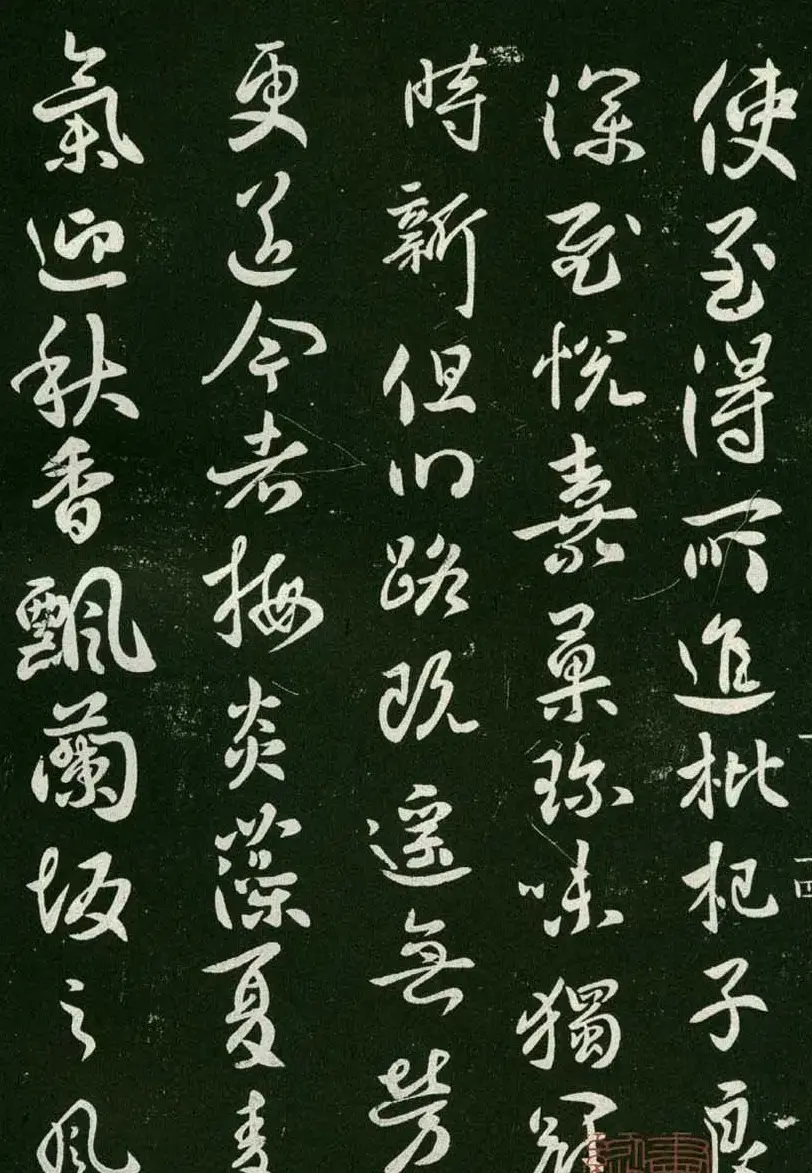 使至得所進枇杷子良
深至悅嘉菓珍味獨冠
時新但川路既遙無勞
更送今者梅炎藻夏麦
氣迎秋香飄蘭坂之風